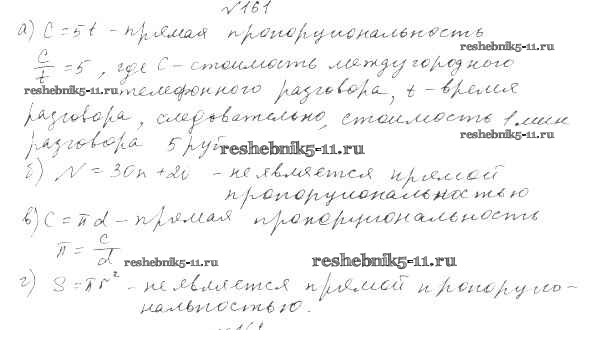 №161
а) C = 5t - прямая пропорциональность
reshebnik5-11.ru
C/t = 5, где C - стоимость междугородного
reshebnik5-11.ru телефонного разговора, t - время
разговора, следовательно, стоимость 1 мин
reshebnik5-11.ru
разговора 5 руб
reshebnik5-11.ru
б) N = 30n + 20 - не является прямой
пропорциональностью
в) C = πd - прямая пропорциональность
π = C/d
reshebnik5-11.ru reshebnik5-11.ru
г) S = πr² - не является прямой пропорцио-
нальностью.